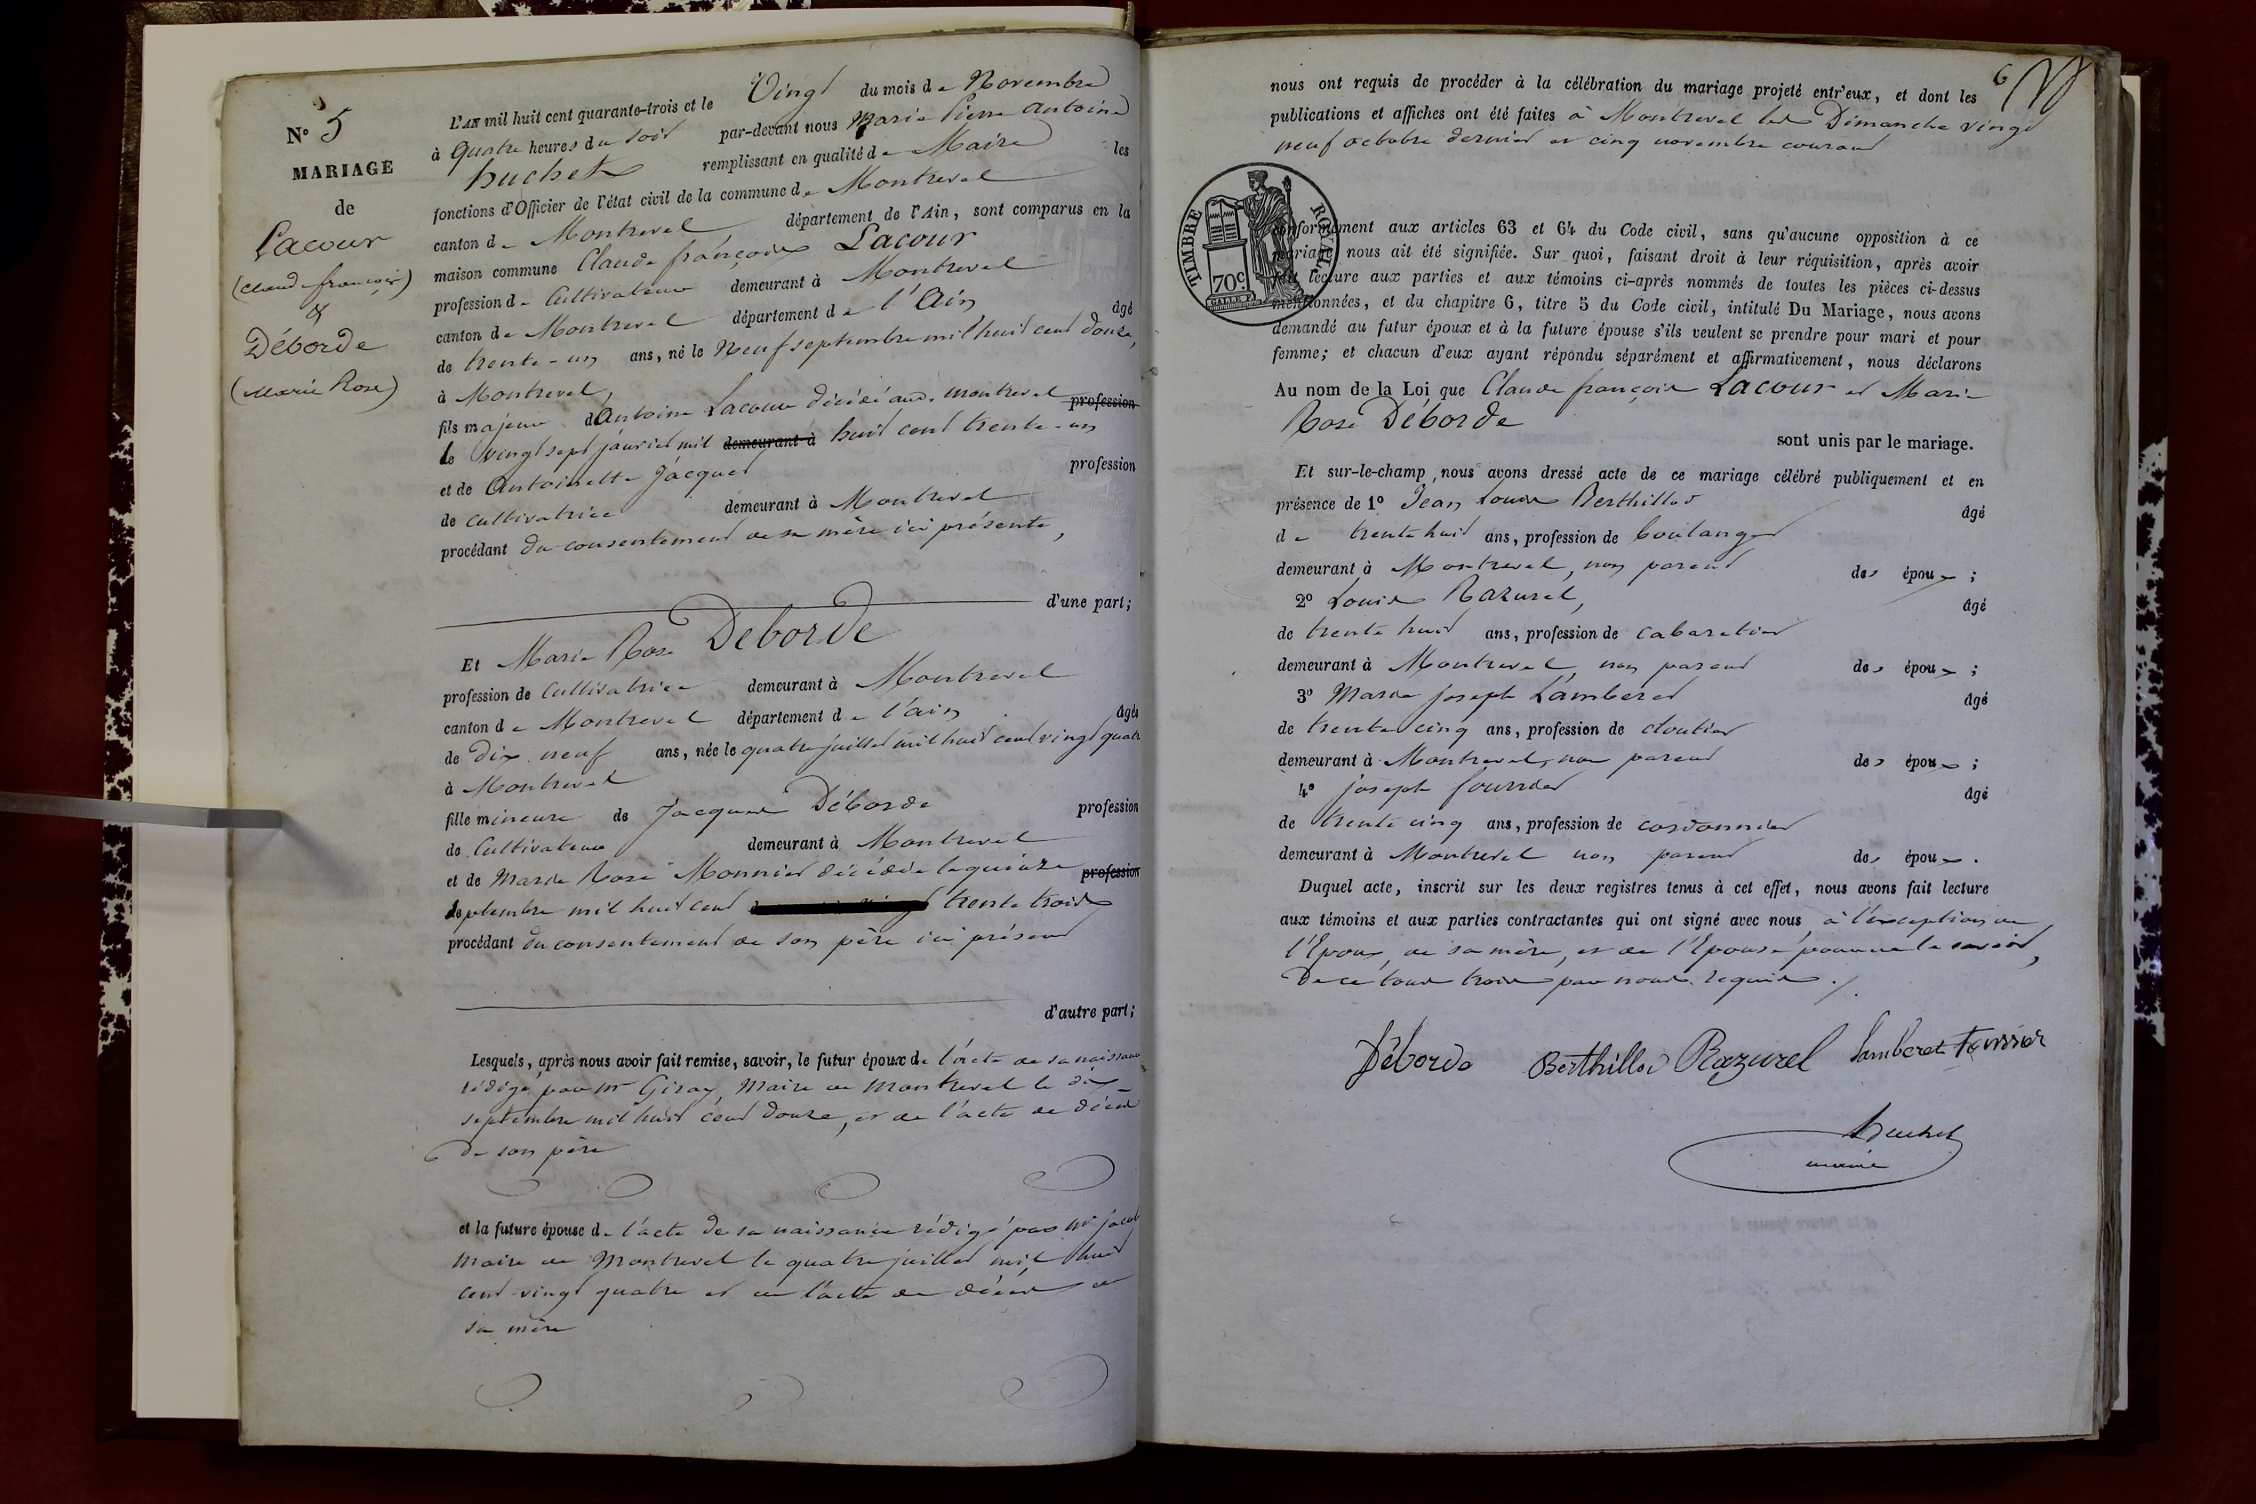 N° 5
MARIAGE
de
Lacour
(claude françois)
&
Déborde
(Marie Rose)
L'AN mil huit cent quarante-trois et le Vingt du mois de Novembre
à quatre heures du soir par-devant nous Marie Pierre Antoine
huchet remplissant en qualité de Maire les
fonctions d'Officier de l'état civil de la commune de Montrevel
canton de Montrevel département de l'Ain, sont comparus en la
maison commune Claude françois Lacour
profession de Cultivateur demeurant à Montrevel
canton de Montrevel département de l'Ain âgé
de trente-un ans, né le Neuf septembre mil huit cent douze,
à Montrevel,
fils majeur d'Antoine Lacour décédé audt montrevel profession
le vingt sept janvier mil demeurant à huit cent trente-un
et de Antoinette Jacquet profession
de cultivatrice demeurant à Montrevel
procédant du consentement de sa mère ici présente,
d'une part;
Et Marie Rose Déborde
profession de Cultivatrice demeurant à Montrevel
canton de Montrevel département de l'ain âgée
de Dix neuf ans, née le quatre juillet mil huit cent vingt quatre
à Montrevel
fille mineure de Jacques Déborde profession
de Cultivateur demeurant à Montrevel
et de Marie Rose Monnier décédée le quinze profession
septembre mil huit cent trente trois
procédant du consentement de son père ici présent
d'autre part;
Lesquels, après nous avoir fait remise, savoir, le futur époux de l'acte de sa naissance
rédigé par Mr Giroy, Maire de Montrevel le dix
septembre mil huit cent douze, et de l'acte de décès
de son père
et la future épouse de l'acte de sa naissance rédigé par Mr
Maire de Montrevel le quatre juillet mil huit
cent vingt quatre et de l'acte de décès de
sa mère
6
nous ont requis de procéder à la célébration du mariage projeté entr'eux, et dont les
publications et affiches ont été faites à Montrevel les Dimanche vingt
neuf octobre dernier et cinq novembre courant
TIMBRE ROYAL
70c
conformément aux articles 63 et 64 du Code civil, sans qu'aucune opposition à ce
mariage nous ait été signifiée. Sur quoi, faisant droit à leur réquisition, après avoir
fait lecture aux parties et aux témoins ci-après nommés de toutes les pièces ci-dessus
mentionnées, et du chapitre 6, titre 5 du Code civil, intitulé Du Mariage, nous avons
demandé au futur époux et à la future épouse s'ils veulent se prendre pour mari et pour
femme; et chacun d'eux ayant répondu séparément et affirmativement, nous déclarons
Au nom de la Loi que Claude françois Lacour et Marie
Rose Déborde
sont unis par le mariage.
Et sur-le-champ, nous avons dressé acte de ce mariage célébré publiquement et en
présence de 1° Jean Louis Berthillot âgé
de trente huit ans, profession de boulanger
demeurant à Montrevel, non parent des époux ;
2° Louis Razurel, âgé
de trente huit ans, profession de cabaretier
demeurant à Montrevel non parent des époux ;
3° Marie joseph Lamberet âgé
de trente cinq ans, profession de cloutier
demeurant à Montrevel, non parent des époux ;
4° joseph fournier âgé
de trente cinq ans, profession de cordonnier
demeurant à Montrevel non parent des époux .
Duquel acte, inscrit sur les deux registres tenus à cet effet, nous avons fait lecture
aux témoins et aux parties contractantes qui ont signé avec nous, à l'exception de
l'Epoux, de sa mère, et de l'Epouse pour ne le savoir,
De ce tous trois par nous requis ./.
Déborde Berthillot Razurel Lamberet
huchet
maire